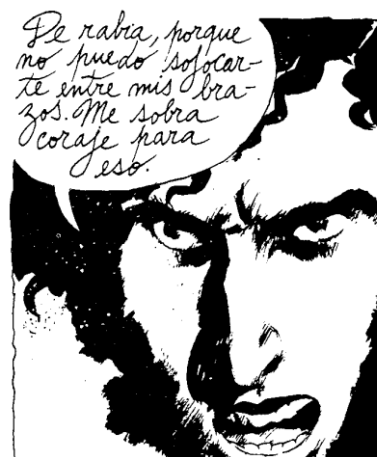 De rabia, porque
no puedo sofocar-
te entre mis bra-
zos. Me sobra
coraje para
eso.